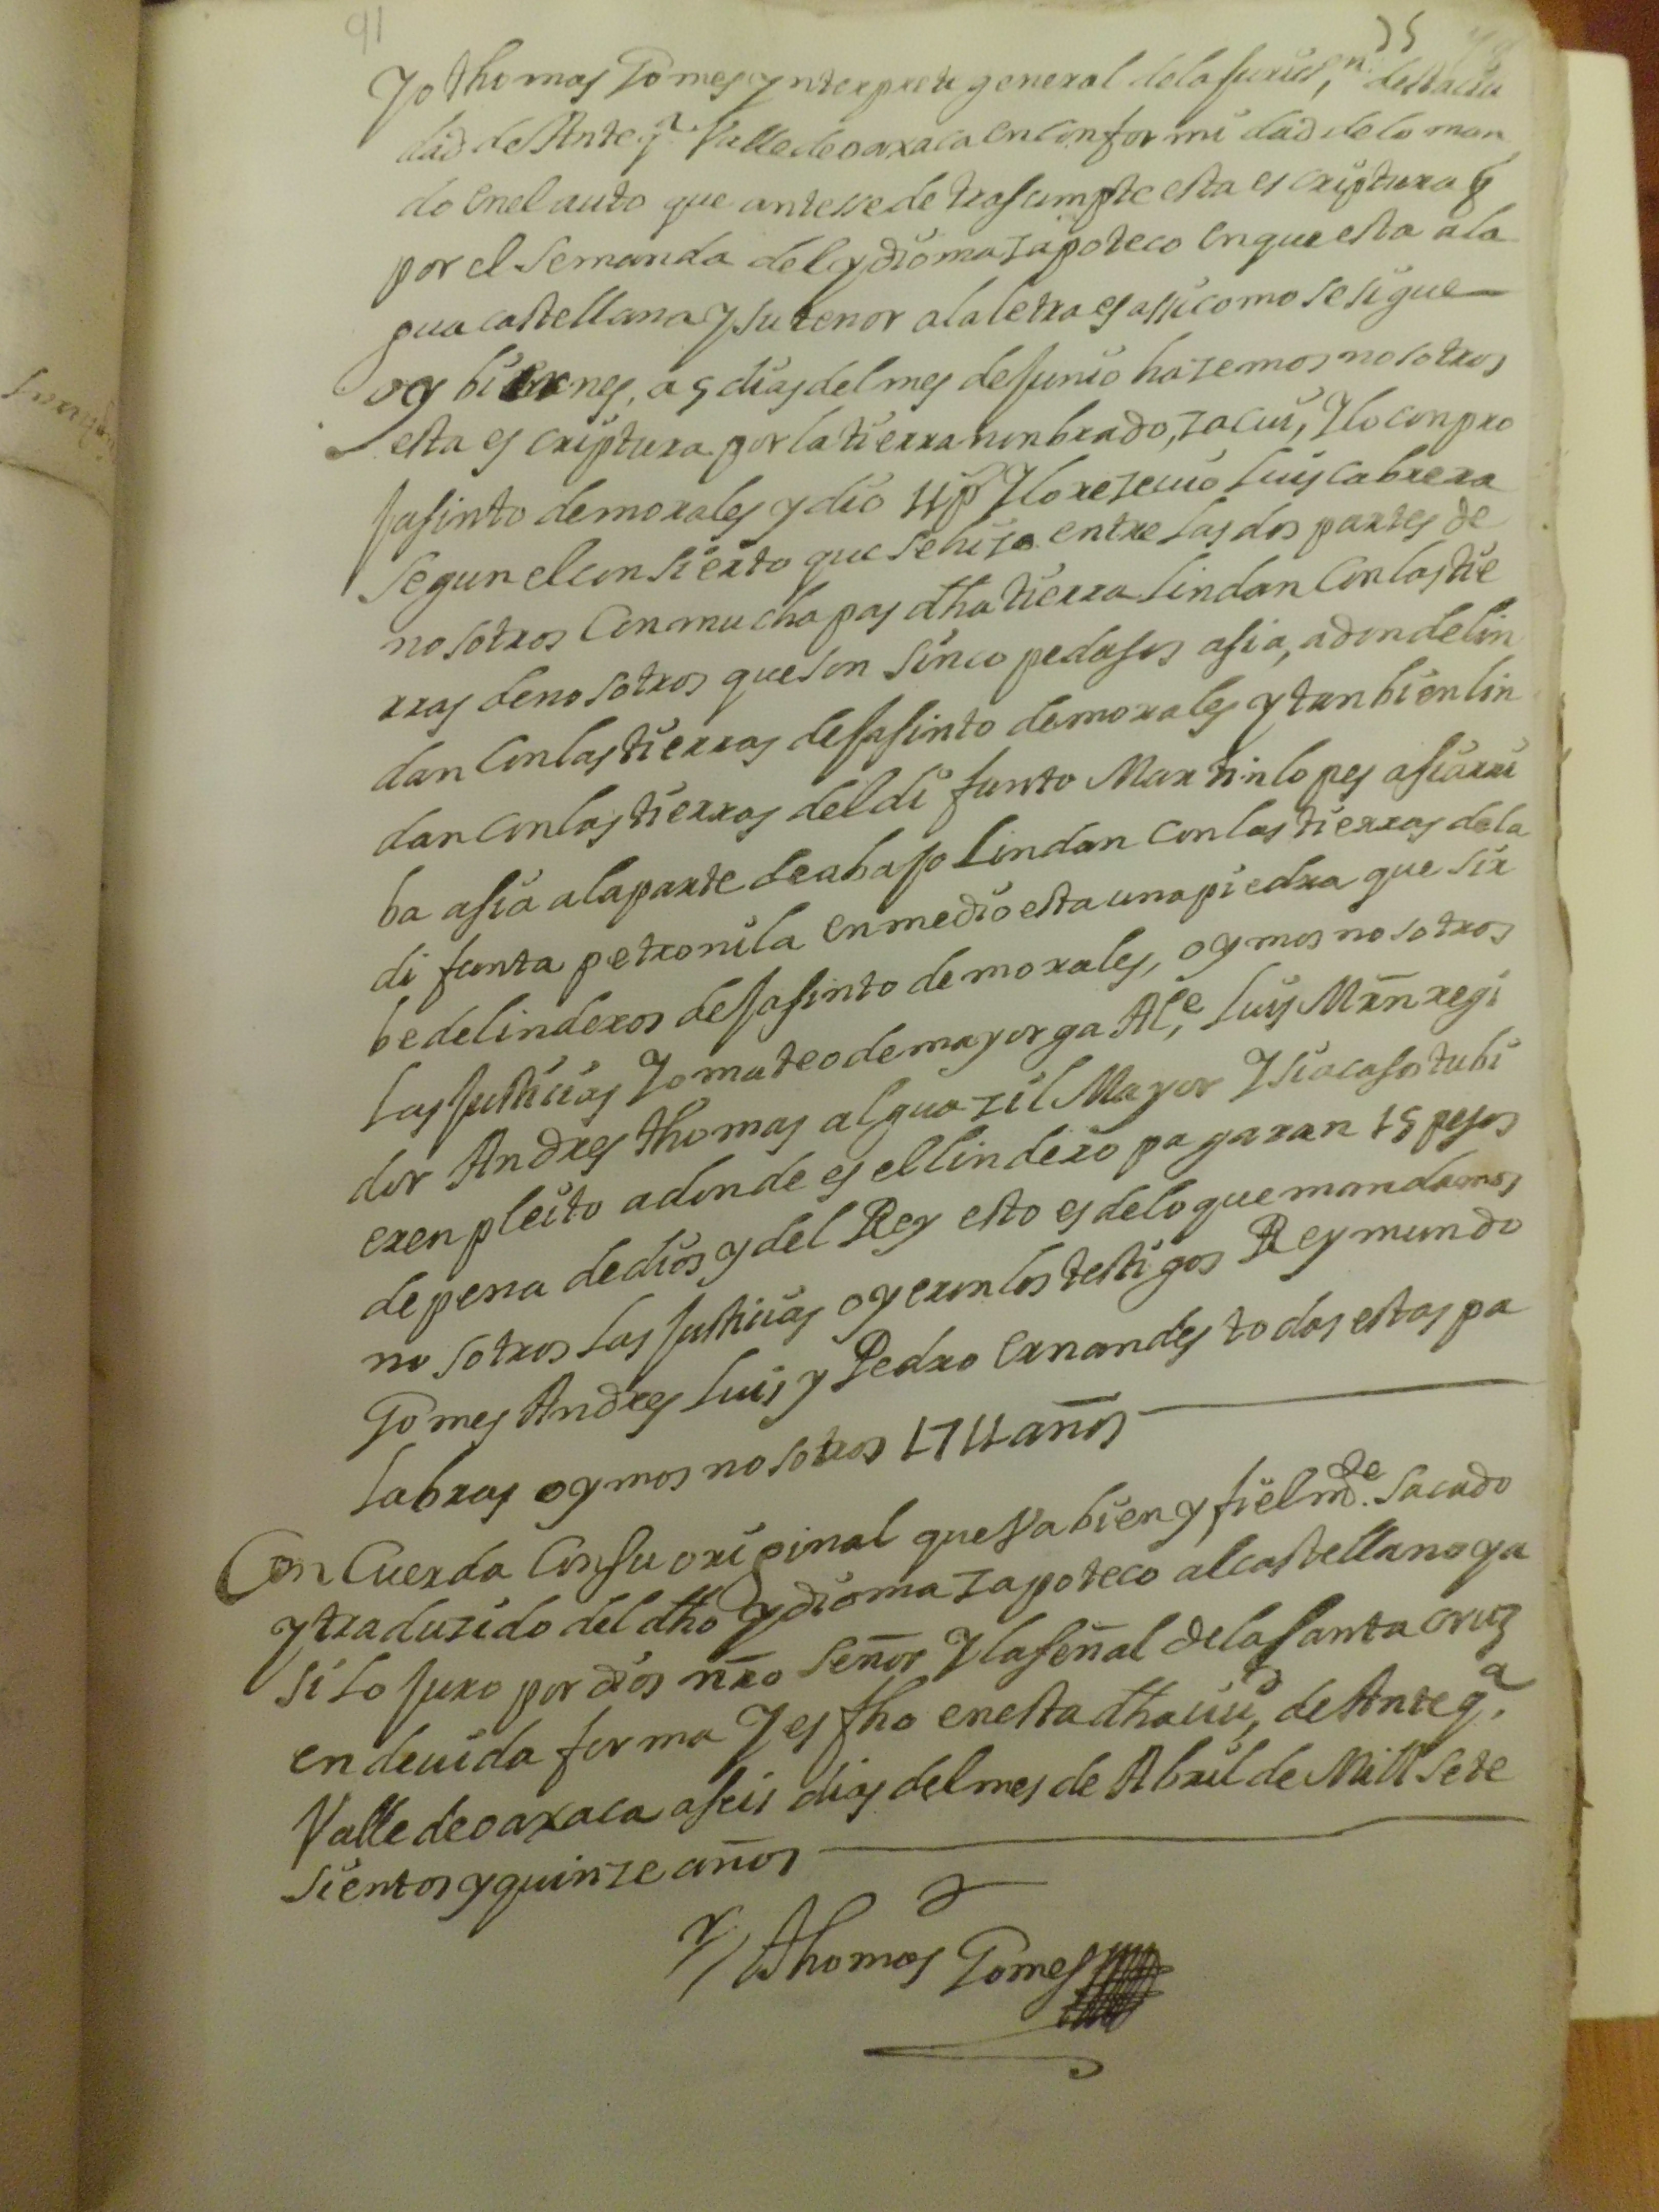 91
35
Yo thomas Gomes ynterprete general de la Jurisd,n desta ciu
dad de Anteqa. Valle de oaxaca en conformidad de lo man
do en el auto que antesede trasumpte esta escriptura q
por el se manda del ydioma zapoteco en que esta a la
gua castellana y su tenor a la letra es assi como se sigue
oy biernes, a 5 dias del mes de Junio hazemos nosotros
esta escriptura por la tierra nonbrado, zacui, Y lo conpro
Jasinto de morales y dio 11 ps Y lo rezeuio luis cabrera
segun el consierto que se hizo entre las dos partes de
nosotros con mucha pas dha tierra lindan con las tie
rras de nosotros que son sinco pedasos asia, adonde lin
dan con las tierras de Jasinto de morales y tanbien lin
dan con las tierras del difunto Martin lopes asia arri
ba asia a la parte de abajo lindan con las tierras de la
difunta petronila en medio esta una piedra que sir
be de linderos de Jasinto de morales, oymos nosotros
las Justicias Yo mateo de mayorga Al,e luis Mrn regi
dor Andres thomas alguazil Mayor Y si acaso tubi
eren pleito adonde es el lindero pagaran 15 pesos
de pena de dios y del Rey esto es de lo que mandamos
nosotros las Justicias oyeron los testigos Reymundo
Gomes Andres luis y Pedro Ernandes todas estas pa
labras oymos nosotros 1711 años
Concuerda con su original que va bien y fielmde. sacado
y traduzido del dho ydioma zapoteco al castellano ya
si lo Juro por dios nro señor Y la señal de la santa cruz
en deuida forma Y es fho en esta dha ciud, de Anteqa.
Valle de oaxaca a seis dias del mes de Abril de Mill sete
sientos y quinze años
Thomas Gomes